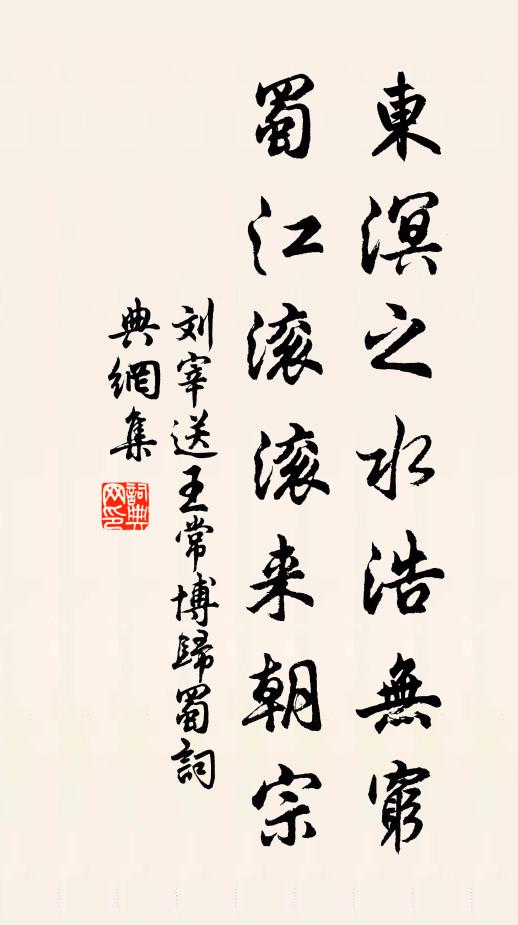 東溟之水浩無窮
蜀江滚滚来朝宗
刘宰送王常博歸蜀詞
典網集
詞典网印